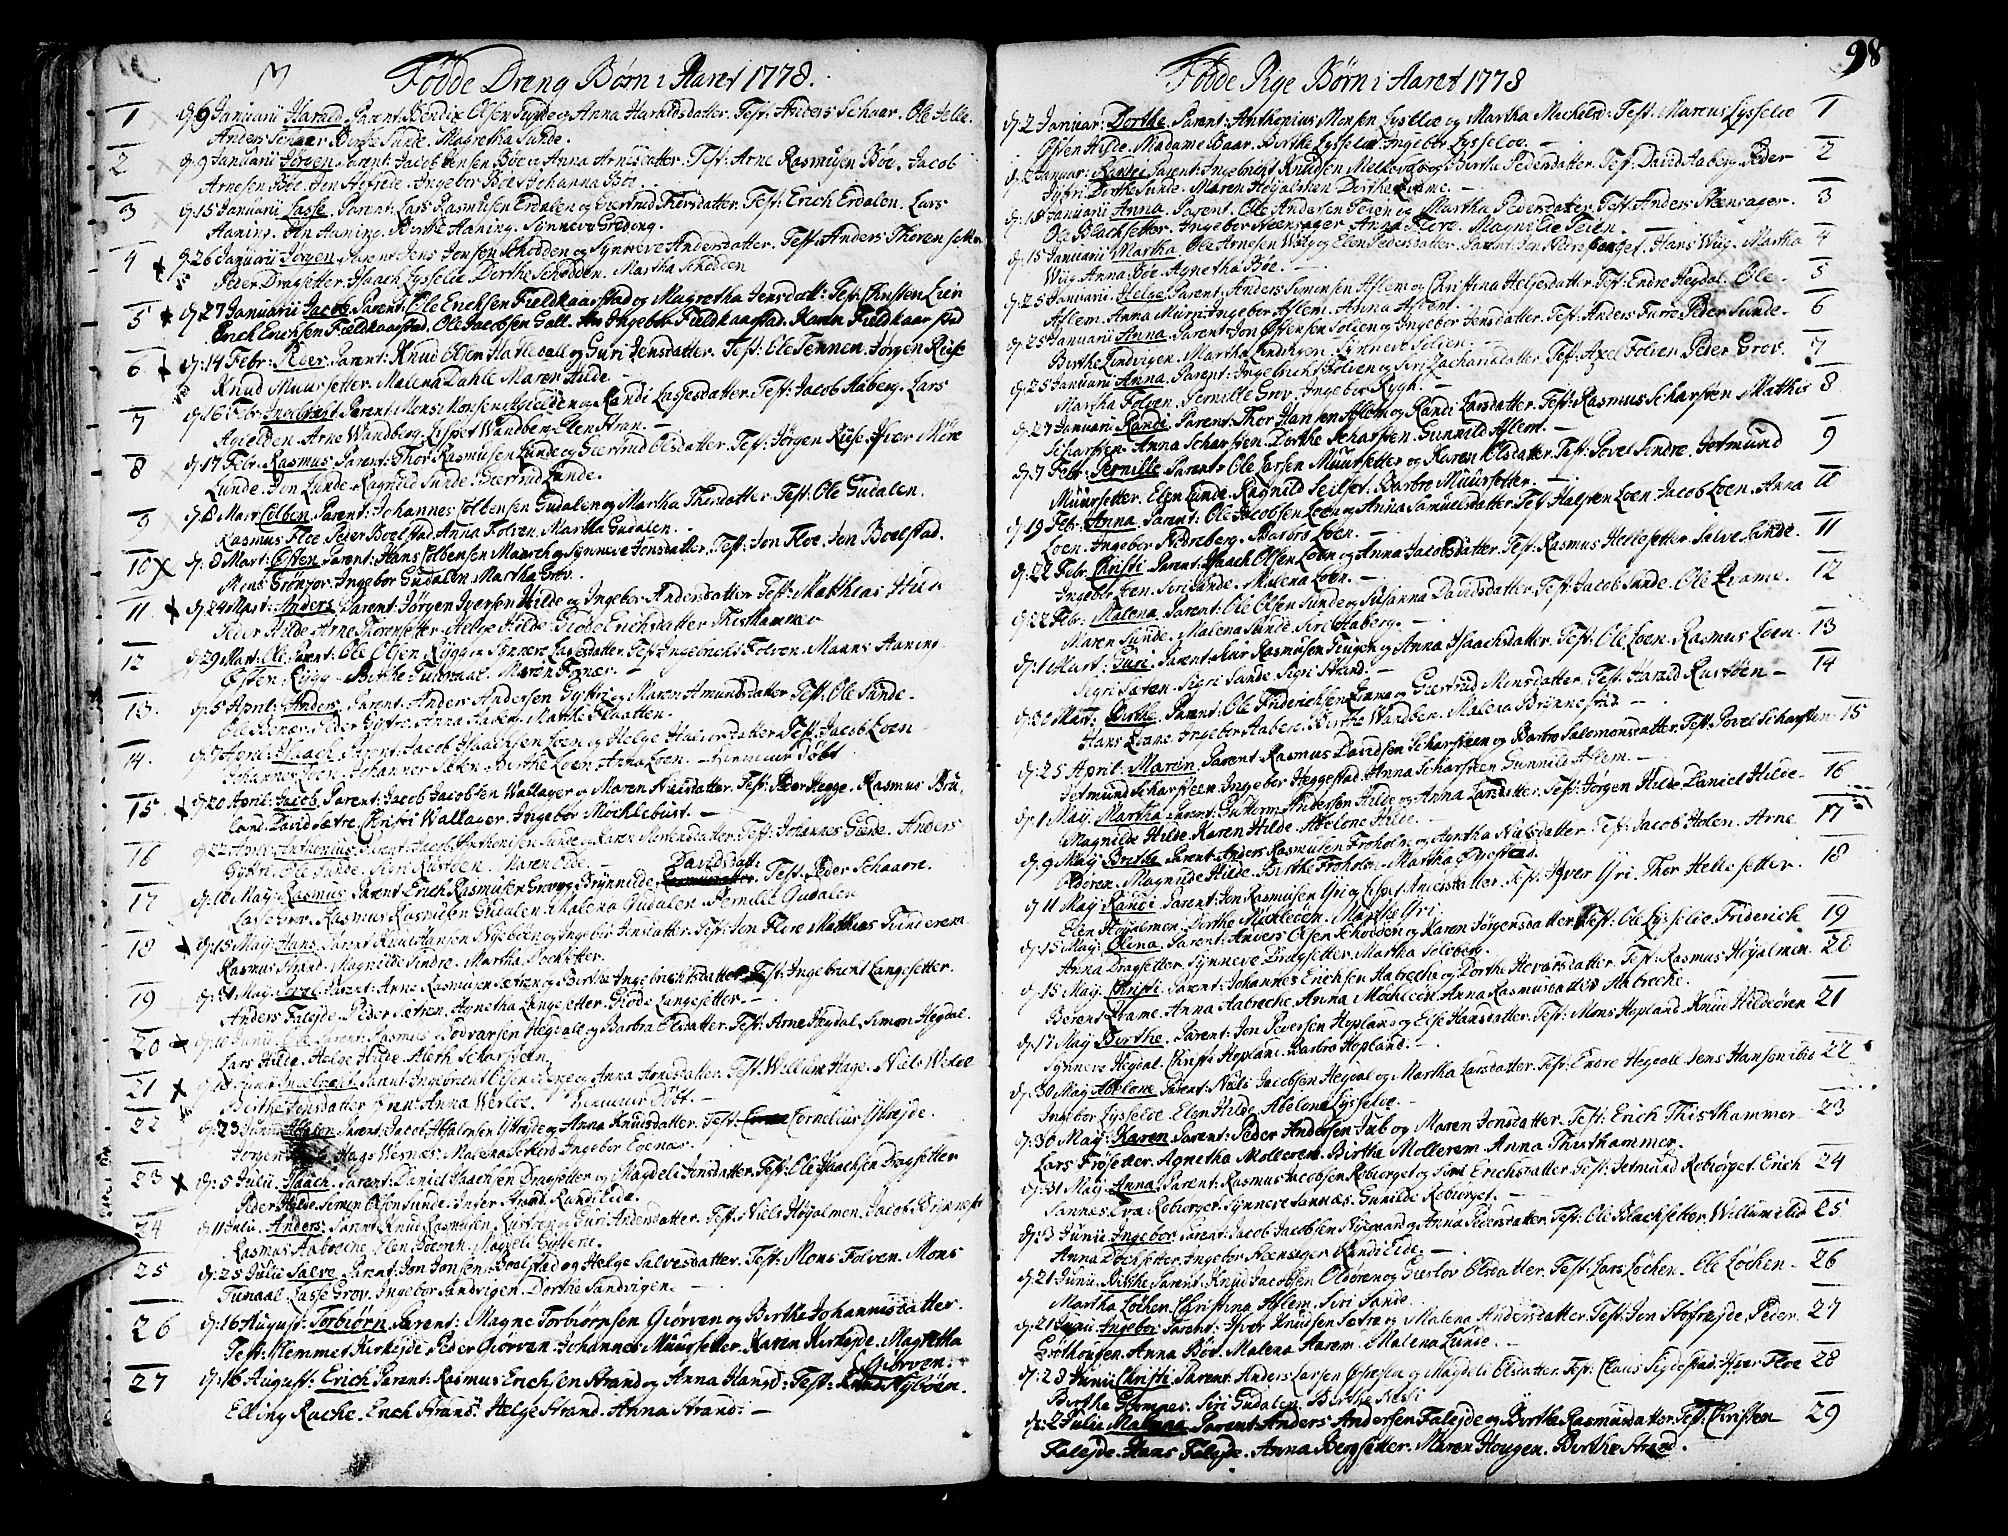 98
Fødde Dreng Børn i Aaret 1778.
1 d. 6 Januarii Harald. Parent: Bendix Olsen Sunde og Anna Haraldsdatter. Test: Anders Schaar. Ole Helle.
Anders Schaar. Sunde. Magretha Sunde.
2 d. 9 Januarii Jørgen. Parent: Jacob Jensen Bøe og Anna Arnesdatter. Test: Arne Rasmusen Bøe. Jacob
Arnesen Bøe. Ingebor Bøe. Johanna Bøe.
3 d. 15 Januarii Lasse. Parent: Lars Rasmusen Erdalen og Giertrud Thorsdatter. Test: Erich Erdalen. Lars
Aaning. Aaning. Birthe Aaning. Synneve Greding.
4 d. 26 Januarii Jørgen. Parent: Jens Jonsen Schodden og Synneve Andersdatter. Test: Anders Thorensetter
Peder Dragsetter. Haach Lysseloe. Dorthe Schodden. Martha Schodden
5 d. 27 Januarii Jacob. Parent: Ole Erichsen Fieldkaarstad og Magretha Jensdatt: Test: Christen Lien
Erich Erichsen Fieldkaarstad. Ole Jacobsen Gall. Ingebor Fieldkaarstad. Karen Fieldkaarstad
6 d. 14 Febr: Peder. Parent: Knud Olsen Hattledall og Guri Jensdatter. Test: Ole Tennen. Jørgen Riise
Knud Muursetter. Malena Dahle. Maren Hilde.
7 d. 16 Febr: Ingebrigt. Parent: Mons Monsen Agielden og Randi Lassesdatter. Test: Jacob Aaberg. Lars
Agielden. Arne Wandberg. Lispet Wandberg. Elen Stran.
8 d. 17 Febr: Rasmus. Parent: Thor Rasmusen Lunde og Giertrud Olsdatter. Test: Jørgen Riise. Iver Møre
Lunde. Jon Lunde. Ragnild Sunde. Giertrud Lunde.
9 d. 8 Mart: Colben. Parent: Johannes Colbensen Gudalen og Martha Thorsdatter. Test: Ole Gudalen.
Rasmus Floe. Peder Boelstad. Anna Folven. Martha Gudalen.
10 d. 8 Mart: Østen. Parent: Hans Colbensen og Synneve Jonsdatter. Test: Jon Floe. Jon Boelstad.
Mons Grønfor. Ingebor Gudalen. Martha Grov.
11 d. 24 Mart: Anders. Parent: Jørgen Iversen Hilde og Ingebor Andersdatter. Test: Matthias Huus
Hilde. Arne Thorensetter. Helge Hilde. Giøde Erichsdatter Thisthammer
12 d. 29 Mart: Ole. Parent: Ole Olsen Rygg og Synneve Lassesdatter. Test: Ingebricht Folven. Maans Aaning
Østen Rygg. Birthe Maren
13. d. 5 April: Anders. Parent: Anders Andersen Gytri og Maren Amundsdatter. Test: Ole Sunde.
Ole Peder Gytri. Anna Aaberg. Marthe Flaatten.
14. d. 7 April: Haach. Parent: Jacob Haachsen Loen og Helge Halvorsdatter. Test: Jacob Loen
Johannes Loen. Johannes Sæten. Birthe Loen. Anna Loen. Hiemme Døbt
15. d. 20 April: Jacob. Parent: Jacob Jacobsen Wallaver og Maren Nielsdatter. Test: Peder Hegge. Rasmus Bru
land. David Sætre. Christi Wallaver. Ingebor Mochlebust.
16 d. 22 April: Anthonius. Parent: Jacob Anthonisen Sunde og Karen Mortensdatter. Test: Johannes Giede. Anders
Gytri. Ole Sunde. Siri Rustøen. Maren Eide.
17 d. 10 May: Rasmus. Parent: Erich Rasmusen Grov og Brynnilde Davidsdatt: Test: Peder Schaare.
Lars Grov. Rasmus Rasmusen Gudalen. Malena Gudalen. Pernille Gudalen
18 d. 15 May: Hans. Parent: Knud Hansen Nybøen og Ingebor Jensdatter. Test: Jon Floe. Matthias Tvinderem
Rasmus Strand. Magnilde Sindre. Martha
19 d. 31 May: Parent: Arne Rasmusen Sætren og Birthe Ingebrichtsdatter. Test: Ingebricht Langesetter.
Anders Falejde. Peder Sætren. Agnetha Langesetter. Giøde Langesetter.
20 d. Junii: Ole. Parent: Rasmus Bodvarsen Hegdall og Barbra Olsdatter. Test: Arne Hegdal. Simon Hegdal.
Lars Hilde. Helge Hilde. Aleth Scharsteen
21 d. Junii: Ingebrigt. Parent: Ingebricht Olsen og Anna Arnesdatter. Test: Willum Hage. Niels Werlde
Birthe Jensdatter Anna Werloe. Hiemme Døbt.
22 d. 23 Junii: Absalon. Parent: Jacob Absalonsen Ytrejde og Anna Knudsdatter. Test: Cornelius Ytrejde.
Jørgen Hage Wesnæs. Malena Ingebor
23 d. 5 Julii: Haach. Parent: Daniel Haachsen Dragsetter og Magdeli Jonsdatter. Test: Ole Haachsen Dragsetter
Peder Hilde. Simen Olsen Sunde. Strand. Randi Eide.
24 d. 11 Julii: Anders. Parent: Knud Rasmusen Rustøen og Guri Andersdatter. Test: Niels Høyalmen. Jacob
Rasmus Aabreche.
25 d. 25 Julii Salve. Parent: Jon Jonsen Boelstad og Helge Salvesdatter. Test: Mons Folven. Mons
Tunaal. Lasse Grov. Ingebor Sandvigen. Dorthe Sandvigen.
26 d. 16 August: Torbiørn. Parent: Magne Torbiørnsen Giørven og Birthe Johannesdatter.
Test: Hemmer Kirkejde. Peder Giørven. Johannes Muursetter. Karen Kirkejde. Magretha
Giørven.
27 d. 16 August: Erich. Parent: Rasmus Erichsen Strand og Anna Hansd: Test: Nybøen.
Elling Rache. Erich Strand. Helge Strand. Anna Strand.
Fødde Pige Børn i Aaret 1778
d. 2 Januar: Dorthe. Parent: Anthonius Monsen Lysseloe og Martha Michelsd: Test: Marcus Lysseloe 1
Østen Hilde. Madame Baar. Birthe Lysseloe. Ingebor Lysseloe.
d. 2 Januar: Randi. Parent: Ingebrigt Knudsen Melheim og Birtha Pedersdatter. Test: David Aaberg. Peder 2
Gytri. Dorthe Sunde. Maren Høyalmen. Dorthe Qvame.
d. 18 Januarii Anna. Parent: Ole Andersen Teien og Martha Pedersdatter. Test: Anders Neensager. 3
Ole Blachsetter. Ingebor Neensager. Anna Flore. Magnilde Teien.
d. 15 Januarii Martha. Ole Arnesen Wiig og Elen Pedersdatter. Parent: Jon Nedreberget. Hans Wiig. Martha 4
Wiig. Anna Bøe. Agnetha Bøe.
d. 25 Januarii Helge. Parent: Anders Simonsen Aflem og Christina Helgesdatter. Test: Endre Hegdal. Ole 5
Aflem. Anna Muri. Ingebor Aflem. Anna Aflem.
d. 25 Januarii Anna. Parent: Jon Østensen Solien og Ingebor Jensdatter. Test: Anders Furre. Peder Sunde. 6
Birthe Sindvigen. Martha Sindvigen. Synneve Solien.
d. 25 Januarii Anna. Parent: Ingebricht Folven og Siri Zachariædatter. Test: Axel Folven. Peder Grov. 7
Martha Folven. Pernille Grov. Ingebor Rygh.
d. 27 Januari Randi. Parent: Thor Hansen Aflem og Randi Larsdatter. Test: Rasmus Scharsten. Matthis 8
Scharsten. Anna Scharsten. Dorthe Scharsten. Gunnild Aflem.
d. 7 Febr: Pernille. Parent: Ole Larsen Muursetter og Karen Olsdatter. Test: Povel Sindre. Jetmund 9
Muursetter. Elen Lunde. Ragnild Seilset. Barbro Muursetter.
d. 19 Febr: Anna. Parent: Ole Jacobsen Loen og Anna Samuelsdatter. Test: Halsten Loen. Jacob Loen. Anna
Loen. Ingebor Nedreberg. Barbro Loen.
d. 22 Febr: Christi. Parent: Haach Olsen Loen og Anna Jacobsdatter. Test: Rasmus Hellesetter. Salve Sunde. 11
Ingebor Loen. Siri Sunde. Malena Loen.
d. 22 Febr: Malena. Parent: Ole Olsen Sunde og Susanna Davidsdatter. Test: Jacob Sunde. Ole Qvame. 12
Maren Sunde. Malena Sunde. Siri Aaberg.
d. 1 Mart: Guri. Parent: Rasmusen Teugen og Anna Haachsdatter. Test: Ole Loen. Rasmus Loen. 13
Sigri Sæten. Sigri Sande. Sigri Strand.
d. 20 Mart: Birthe. Parent: Ole Fridrichsen Qvame og Giertrud Monsdatter. Test: Harald Rustøen 14
Hans Qvame. Ingebor Aaberg. Birthe Wandberg. Malena Brynnestad.
d. 25 April: Maren. Parent: Rasmus Davidsen Scharsteen og Barbro Salomonsdatter. Test: Povel Scharsten. 15
Jetmund Scharsteen. Ingebor Heggestad. Anna Scharsteen. Gunnild Aflem.
d. 1 May: Martha. Parent: Guttorm Andersen Hilde og Anna Larsdatter. Test: Jørgen Hilde. Daniel Hilde. 16
Magnilde Hilde. Karen Hilde. Abelone Hilde.
d. 9 May: Birthe. Parent: Anders Rasmusen Froholm og Agnetha Nielsdatter. Test: Jacob Holen. Arne 17
Oldøren. Magnilde Hilde. Birthe Froholm. Martha
d. 11 May: Randi. Parent: Jon Rasmusen Yri og Lispet Andersdatter. Test: Iver Yri. Thor Hellesetter. 18
Elen Høyalmen. Dorthe Mochleøen. Marthe Yri.
d. 15 May: Olena. Parent: Anders Olsen Schodden og Karen Jørgensdatter. Test: Ole Lysseloe. Friderich 19
Anna Dragsetter. Synneve Bredgsetter. Martha Solebøen.
d. 15 May: Christi. Parent: Johannes Erichsen Aabreche og Dorthe Hovarsdatter. Test: Rasmus Høyalmen. 20
Berent Qvame. Anna Aabreche. Anna Mochleøen. Anna Rasmusdatter Aabreche.
d. 17 May: Birthe. Parent: Jon Pedersen Hopland og Else Hansdatter. Test: Mons Hopland. Knud Hildeøren 21
Synneve Hegdal. Christi Hopland. Barbro Hopland.
d. 30 May: Abelone. Parent: Niels Jacobsen Hegdal og Martha Larsdatter. Test: Endre Hegdall. Jens Hansen ibid 22
Ingebor Lysseloe. Elen Hilde. Abelone Lysseloe.
d. 30 May: Karen. Parent: Peder Andersen og Maren Jonsdatter. Test: Erich Thisthammer 23
Lars Frøsetter. Agnetha Mollerem. Birthe Mollerem. Anna Thisthammer.
d. 31 May: Anna. Parent: Rasmus Jacobsen Roberget og Siri Erichsdatter. Test: Jetmund Roberget. Erich 24
Sannes. Eva Roberget. Synneve Sannæs. Gunilde Roberget.
d. 3 Junii: Ingebor. Parent: Jacob Jacobsen Nygaard og Anna Pedersdatter. Test: Ole Blachsetter. Willum ibid 25
Anna Dochsetter. Ingebor Neensager. Randi Eide.
d. 21 Junii: Birthe. Parent: Knud Jacobsen Olsøren og Gierlov Olsdatter. Test: Lars Løchen. Ole Løchen. 26
Martha Løchen. Christina Aflem. Siri Sande.
d. 21 Junii: Ingebor. Parent: Iver Knudsen Sætre og Malena Andersdatter. Test: Jon Støfrejde. Peder 27
Anna Bøe. Malena Aarem. Malena Lunde.
d. 23 Junii: Christi. Parent: Anders Larsen og Magdeli Olsdatter. Test: Claus Sigdestad. Iver Floe 28
Birthe Glomnes. Siri Gudalen. Birthe
d. 2 Julii Malena. Parent: Anders Andersen Falejde og Birthe Rasmusdatter. Test: Christen 29
Falejde. Hans Falejde. Anna Bergsetter. Maren Hougen. Birthe Strand.